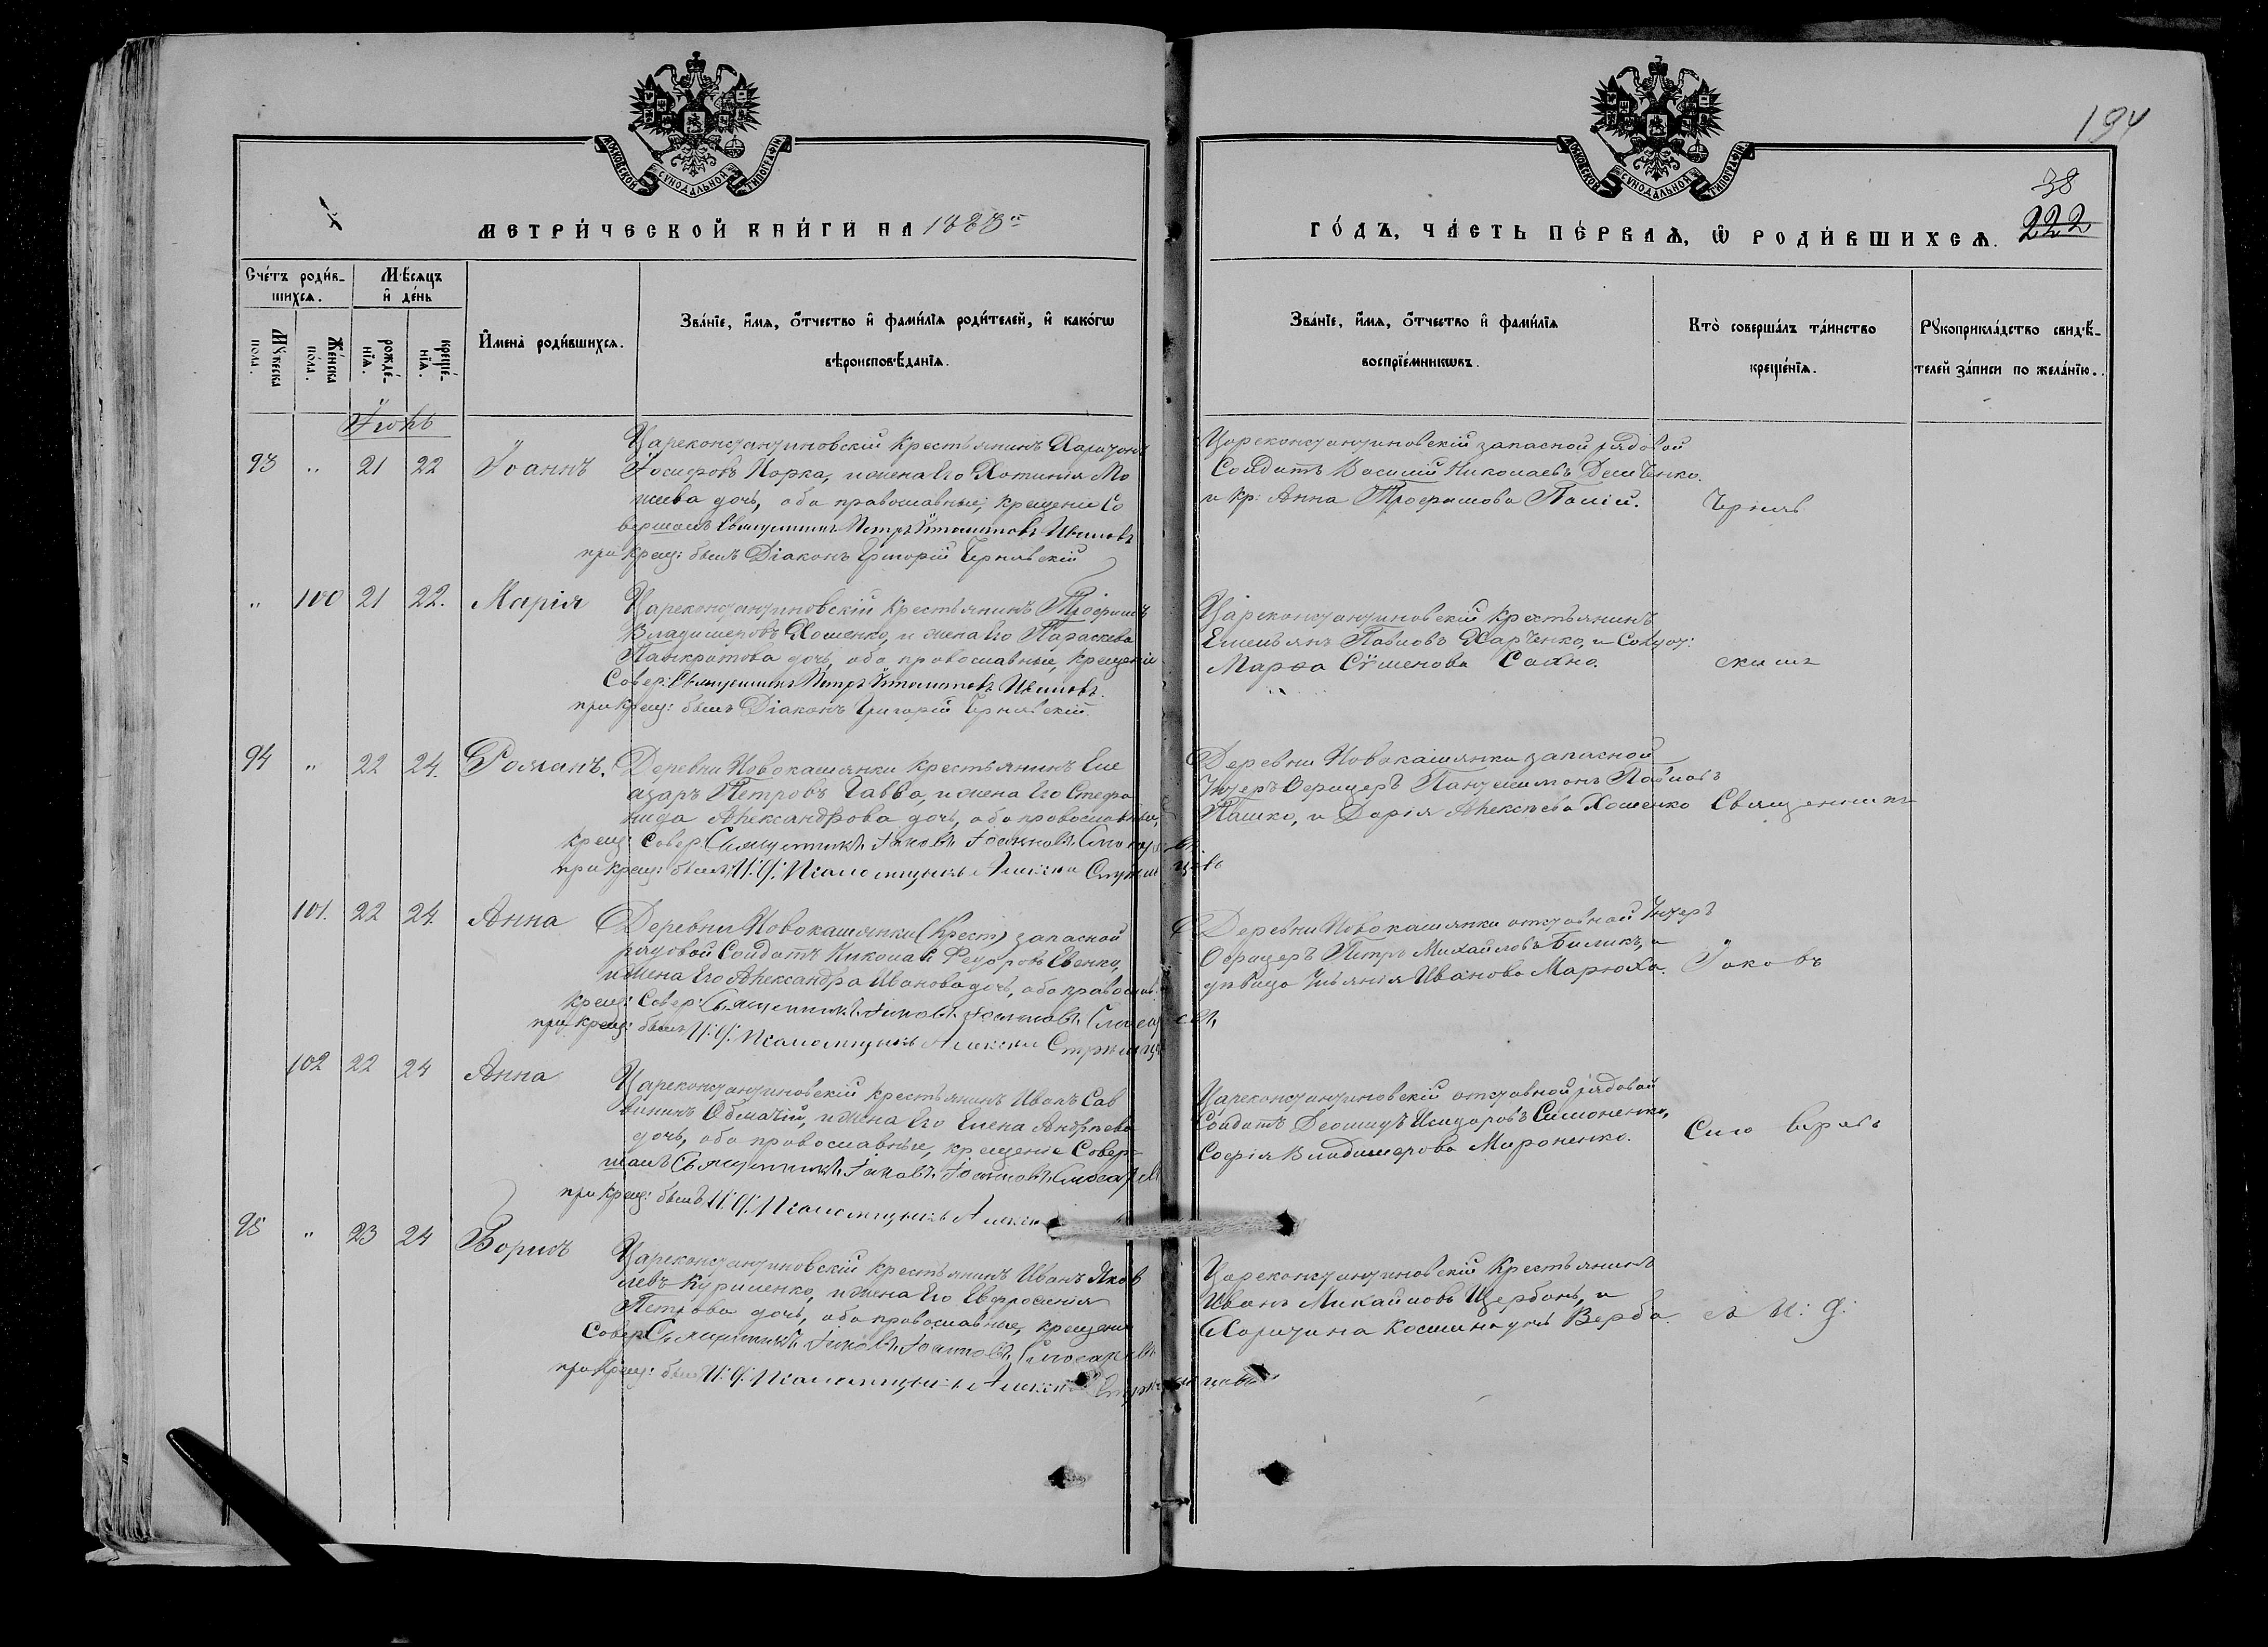 194
38
222
МОСКОВСКОЙ СѴНОДАЛЬНОЙ ТИПОГРАФІИ
МОСКОВСКОЙ СѴНОДАЛЬНОЙ ТИПОГРАФІИ
МЕТРИ́ЧЕСКОЙ КНИ́ГИ НА 188
ГО́ДЪ, ЧА́СТЬ ПЕ́РВАѦ, Ѡ҆ РОДИ́ВШИХСѦ.
Сче́тъ роди́в-
шихсѧ.
Мѣ́сѧцъ
и҆ де́нь
Мꙋ́жеска
по́ла.
Же́нска
по́ла.
рожде́-
нїѧ.
креще́-
нїѧ.
И҆мена̀ роди́вшихсѧ.
Зва́нїе, и҆́мѧ, ѻ҆́тчество и҆ фами́лїѧ роди́телей, и҆ како́гѡ
вѣроисповѣ́данїѧ.
Зва́нїе, и҆́мѧ, ѻ҆́тчество и҆ фами́лїѧ
воспрїе́мникѡвъ.
Кто̀ соверша́лъ та́инство
креще́нїѧ.
Рꙋкоприкла́дство свидѣ́-
телей за́писи по жела́нїю.
Іюнь
93 " 21 22 Іоаннъ
Цареконстантиновскій крестьянинъ Харитонъ
Іосифовъ Корка, и жена его Хотинія Мо
дочь, оба православные, крещеніе со
вершалъ Священникъ Петръ
при крещ: былъ Діаконъ Григорій Чернявскій
Цареконстантиновскій запасной рядовой
Солдатъ Василій Николаевъ Демченко,
и кр: Анна Трофимова Палій.
Черняв
" 100 21 22. Марія
Цареконстантиновскій крестьянинъ Трофимъ
Владимеровъ Хоменко, и жена его Параскева
Панкратова дочь, оба православные, крещеніе
Совер: Священникъ Петръ
при крещ: былъ Діаконъ Григорій Чернявскій.
Цареконстантиновскій крестьянинъ
Емельянъ Павловъ Харченко, и
Марѳа Сѵменова
скимъ
94 " 22 24. Романъ.
Деревни Новокашянки крестьянинъ Еле
азаръ Петровъ Савва, и жена его Стефа
нида Александрова дочь, оба православные,
крещ: совер: Священникъ Іаковъ Іоанновъ
при крещ: былъ И. Д. Псаломщикъ Алексѣй
Деревни Новокашянки запасной
Унтеръ Офицеръ Пантелимонъ Павловъ
Пашко, и Дарія Алексѣева Хоменко
Священникъ
101. 22 24. Анна
Деревни Новокашянки (Крест) запасной
рядовой Солдатъ Николай Федоровъ Евенко,
и жена его Александра Иванова дочь, оба правосл:
крещ: Совер: Священникъ Іаковъ Іоанновъ
при крещ: былъ И. Д. Псаломщикъ Алексѣй
Деревни Новокашянки отставной Унтеръ
Офицеръ Петръ Михайловъ Биликъ, и
дѣвица Ульянія Иванова Марюха.
Іаковъ
102 22 24 Анна
Цареконстантиновскій крестьянинъ Иванъ Сав
винъ и жена его Елена Андрѣева
дочь, оба православные, крещеніе Совер-
шалъ Священникъ Іаковъ Іоанновъ
при крещ: былъ И. Д. Псаломщикъ
Цареконстантиновскій отставной рядовой
Солдатъ Леонидъ Исидоровъ Симоненко,
Софія Владимерова Мироненко.
95 " 23 24 Борисъ
Цареконстантиновскій крестьянинъ Иванъ Яков
левъ Куриленко, и жена его Евфросинія
Петрова дочь, оба православные, крещеніе
Совер: Священникъ Іаковъ Іоанновъ
при крещ: былъ И. Д. Псаломщикъ
Цареконстантиновскій крестьянинъ
Иванъ Михайловъ Щербань, и
Харитина Космина дочь Верба.